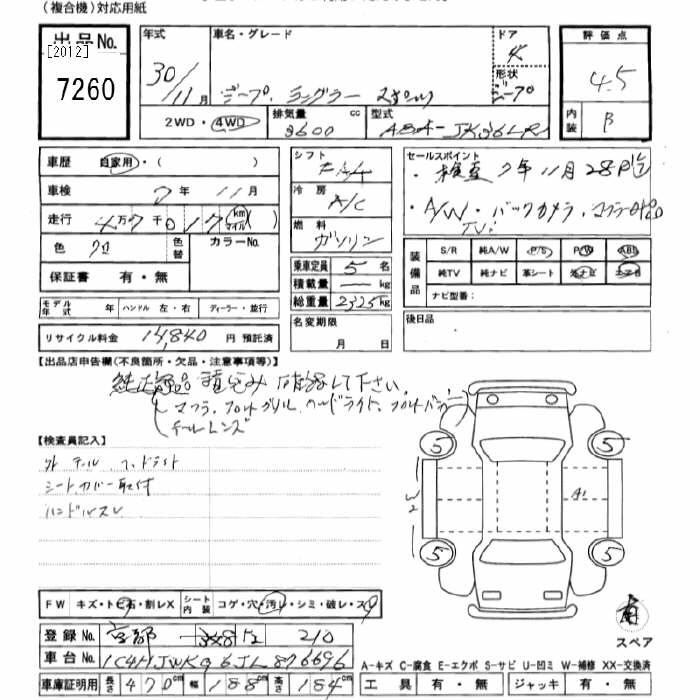 (複合機)対応用紙
出品No.
[2012]
7260
年式 30/11月
車名・グレード ジープ ラングラー スポーツ
ドア 4
形状 ジープ
評価点 4.5
内装 B
2WD・4WD
排気量 3600 cc
型式 ABA-JK36LR
車歴 自家用・( )
車検 7年11月
走行 4万7千017 km マイル
色 クロ
色替
カラーNo.
保証書 有・無
シフト FAA
冷房 A/C
燃料 ガソリン
乗車定員 5名
積載量 — kg
総重量 2325kg
セールスポイント
・検査7年11月28日迄
・A/W・バックカメラ・マフラー
TV・
装備品
S/R 純A/W P/S P/W ABS
純TV 純ナビ 革シート 社ナビ エアB
ナビ型番:
モデル年式 年 ハンドル 左・右 ディーラー・並行
リサイクル料金 14,840 円 預託済
名変期限 月 日
後日品
【出品店申告欄(不良箇所・欠品・注意事項等)】
純正部品積込み 確認して下さい。
(マフラ、フロントグリル、ヘッドライト、フロントバンパー)
テールレンズ
【検査員記入】
外 テール、ヘッドライト
シートカバー取付
ハンドルスレ
5 5
W2
A1
5 5
FW キズ・トビ石・割レX
シート内装 コゲ・穴・汚レ・シミ・破レ・スレ
有
スペア
登録No. 京都 348 に 210
車台No. 1C4HJWKG6JL876696
A-キズ C-腐食 E-エクボ S-サビ U-凹ミ W-補修 XX-交換済
車庫証明用 長さ 470cm 幅 188cm 高さ 184cm
工具 有・無 ジャッキ 有・無